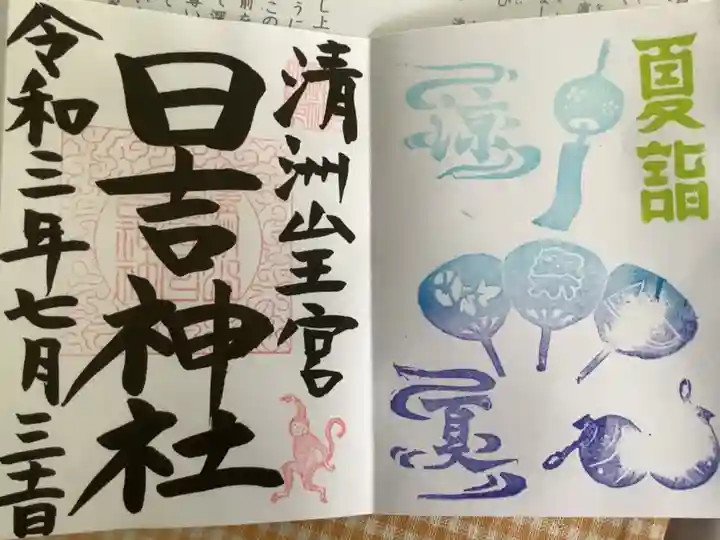 夏詣
涼
夏
清洲山王宮
日吉神社
令和三年七月三十一日